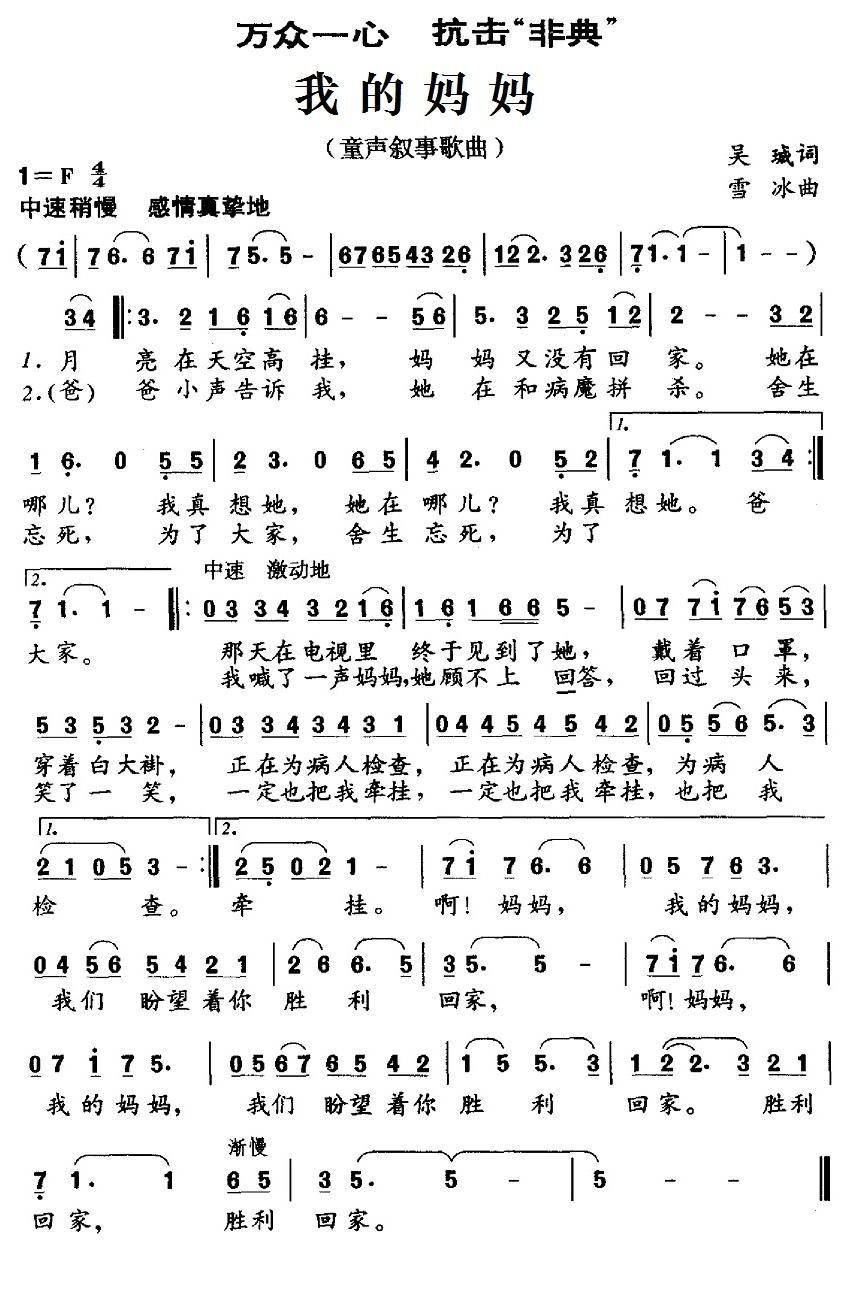 万众一心 抗击“非典”
我的妈妈
（童声叙事歌曲）
吴 瑊词
1=F 4/4
雪 冰曲
中速稍慢 感情真挚地
(7i | 76. 67i | 75. 5 - | 67654326 | 122. 326 | 71. 1 - | 1 - - )
34 ‖: 3. 2 16 16 | 6 - - 56 | 5. 3 25 12 | 2 - - 32 |
1. 月 亮在天空高挂， 妈 妈又没有回 家。 她在
2.(爸) 爸小声告诉我， 她 在和病魔拼 杀。 舍生
1.
1 6. 0 55 | 23. 0 65 | 42. 0 52 | 71. 1 34 :‖
哪儿？ 我真 想她， 她在 哪儿？ 我真 想她。 爸
忘死， 为了 大家， 舍生 忘死， 为了
2. 中速 激动地
71. 1 - ‖: 03 34 3216 | 16 166 5 - | 07 7i 7653 |
大家。 那天在电视里 终于见到了她， 戴着口罩，
我喊了一声妈妈,她顾不上 回答， 回过头来，
53 532 2 - | 03 34 343 1 | 04 45 4542 | 05 56 5. 3 |
穿着白大褂， 正在为病人检查，正在为病人检查，为病 人
笑了一笑， 一定也把我牵挂，一定也把我牵挂，也把 我
1. 2.
21 05 3 - :‖ 25 02 1 - | 7i 76 6. 6 | 05 76 3. |
检 查。 牵 挂。 啊！妈妈， 我的妈妈，
04 56 54 21 | 26 6. 5 | 35. 5 - | 7i76 6. 6 |
我们 盼望着你 胜 利 回家， 啊！妈妈，
07 i 75. | 0567 65 42 | 15 5. 3 | 122. 321 |
我的妈妈， 我们 盼望着你 胜 利 回家。 胜利
渐慢
71. 1 65 | 35. 5 - | 5 - - ‖
回家， 胜利 回家。